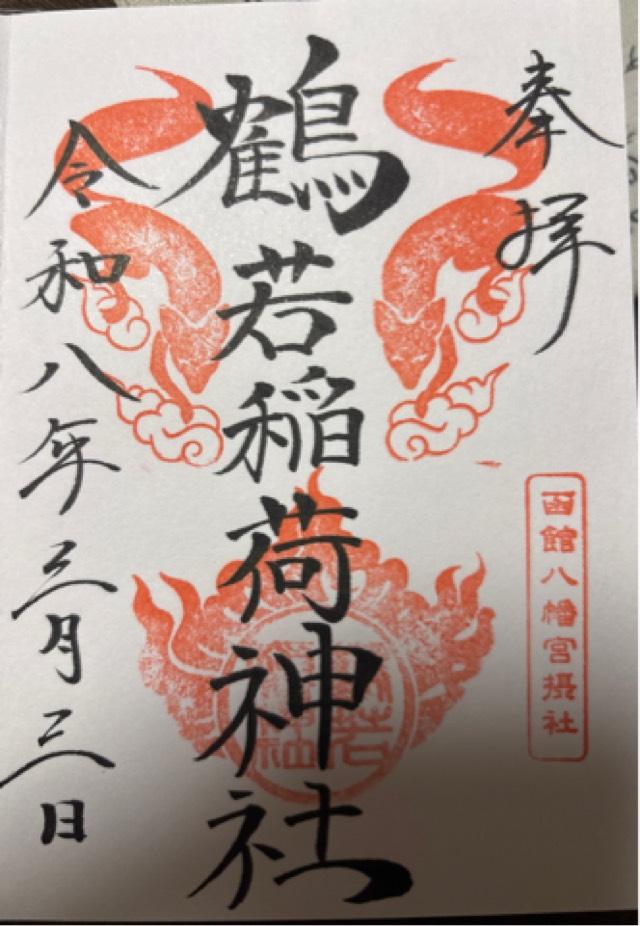 奉拝
函館八幡宮摂社
鶴若稲荷神社
令和八年三月三日